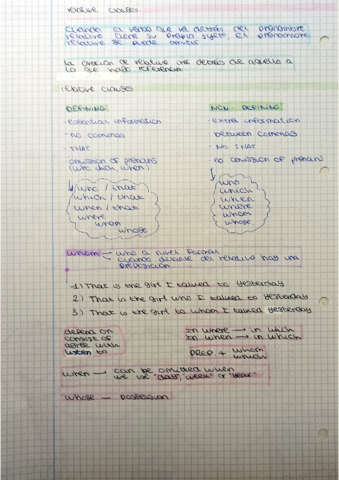 relative clauses
Cuando el verbo que va detrás del pronombre
relative tiene su propio sujeto, el pronombre
relative se puede omitir
la oración de relative va detrás de aquello a
lo que hace referencia
relative clauses
DEFINING
NON DEFINING
· essential information
· extra information
· no commas
· between commas
· THAT
· NO THAT
· omission of pronouns
· no omission of pronouns
(who, which, when)
who / that
which / that
when / that
where
whom
whose
who
which
when
where
whom
whose
whom → who a nivel formal
cuando delante del relative hay una
preposición
1) That is the girl I talked to yesterday
2) That is the girl who I talked to yesterday
3) That is the girl to whom I talked yesterday
depend on
consist of
agree with
listen to
In where → in which
In when → in which
PREP + whom
which
when → can be omitted when
we use "days", "week" or "year"
whose — possession